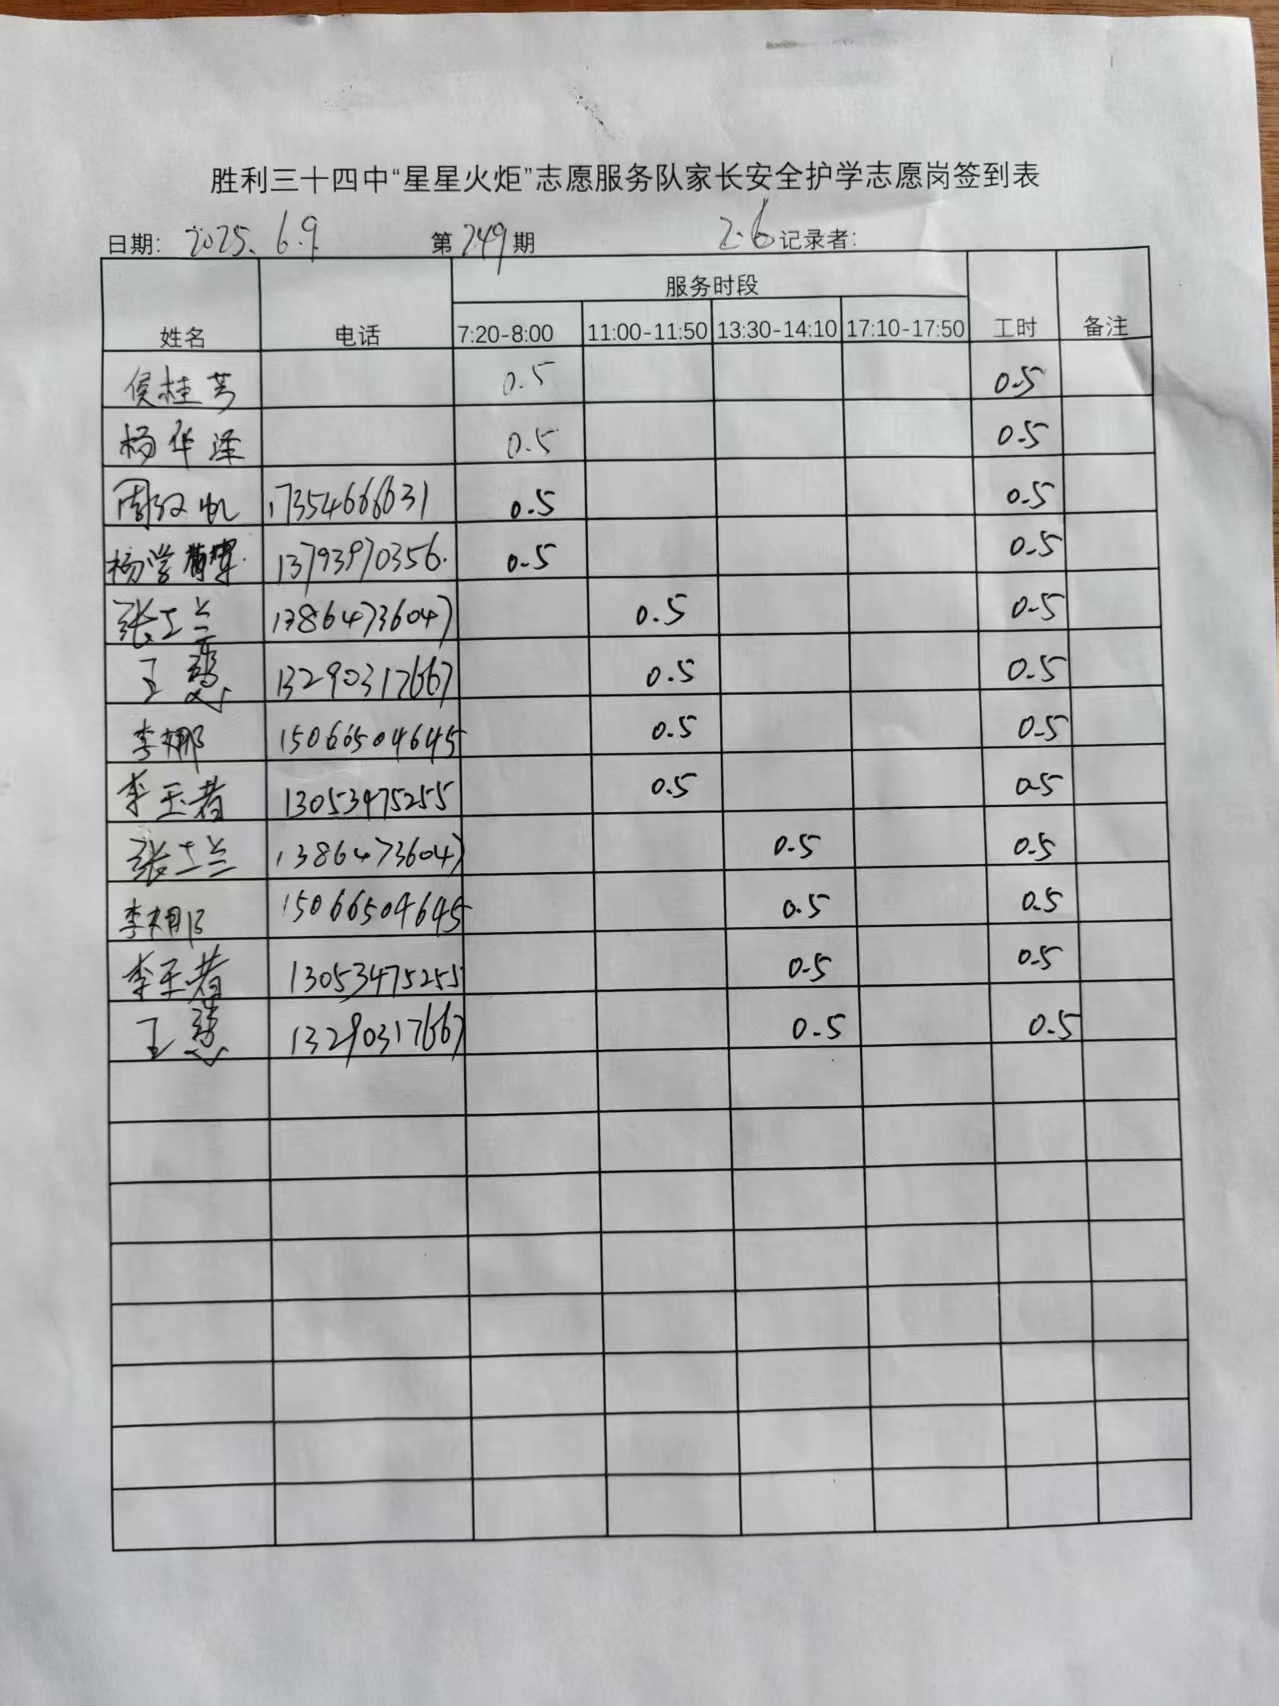 胜利三十四中“星星火炬”志愿服务队家长安全护学志愿岗签到表
日期: 2025.6.9. 第249期 2.6 记录者:
服务时段
姓名 电话 7:20-8:00 11:00-11:50 13:30-14:10 17:10-17:50 工时 备注
侯桂芳 0.5 0.5
杨华泽 0.5 0.5
周 17354666631 0.5 0.5
杨学 13793970356. 0.5 0.5
张工兰 13864736047 0.5 0.5
王慧 13290317667 0.5 0.5
李娜 15066504645 0.5 0.5
李玉者 13053475255 0.5 0.5
张工兰 13864736047 0.5 0.5
李娜 15066504645 0.5 0.5
李玉者 13053475255 0.5 0.5
王慧 13290317667 0.5 0.5